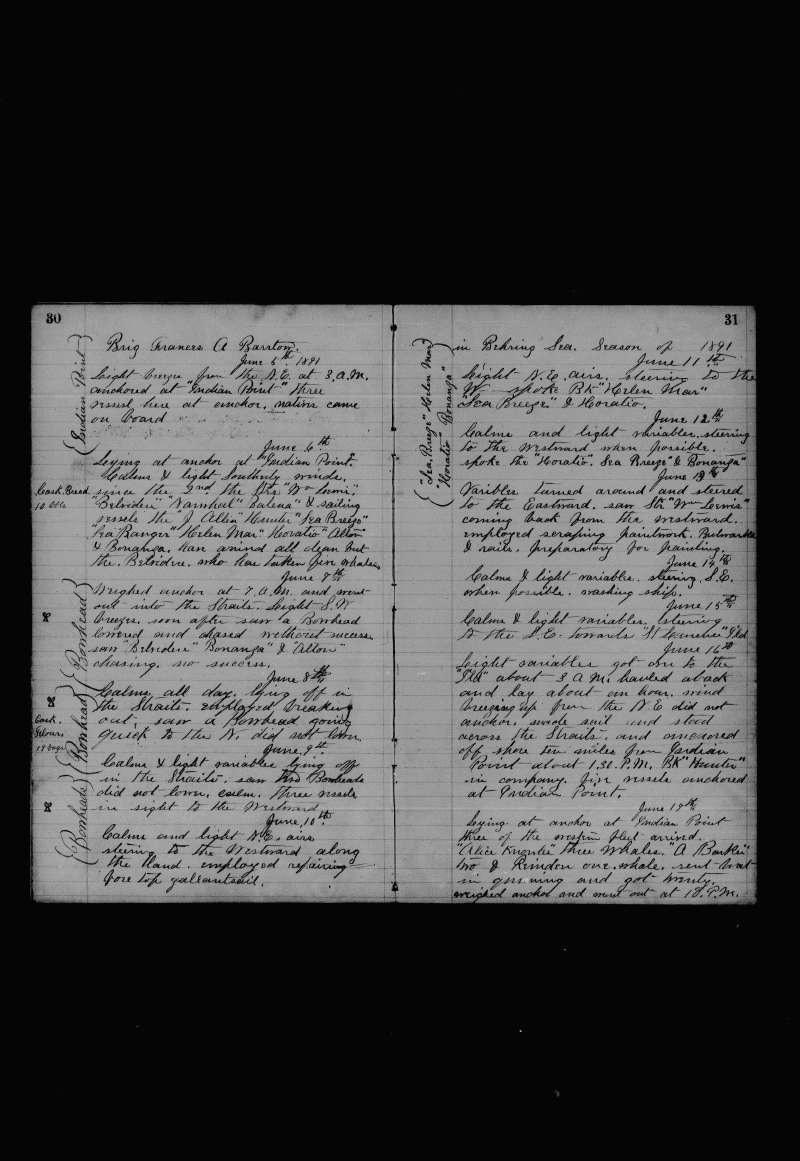 30
Brig Frances A Barstow.
June 5th 1891
Light breezes from the N.E. at 3. A.M.
anchored at "Indian Point" three
vessels here at anchor, natives came
on board
(Indian Point)
June 6th
Laying at anchor at "Indian Point".
Calms & light Southerly winds.
Cask Bread
since the 2nd the Strs "Wm Lewis"
"Belvidere" "Narwhal" "Balena" & sailing
vessels the "J. Allen" "Hunter" "Sea Breeze"
"Sea Ranger" "Helen Mar" "Horatio" "Alton"
& Bonanza, han arived all clean but
the Belvidere. who has taken five whales
June 7th
Weighed anchor at 7. A.M. and went
out into the Straits. Light S.W
breezes, soon after saw a Bowhead
lowered and chased without success.
saw "Belvidere" "Bonanza" & "Alton"
chasing. no success.
(Bowhead)
June 8th
Calms all day, lying off in
the Straits. employed breaking
out, saw a Bowhead going
quick to the N. did not lower
(Bowhead)
Cask
June 9th
Calms & light variables lying off
in the Straits. saw two Bowheads
did not lower, three vessels
in sight to the Westward
(Bowheads)
June 10th
Calms and light N.E. airs
steering to the Westward along
the land. employed repairing
fore top gallantsail.
31
in Behring Sea. Season of 1891
June 11th
Light N.E. airs. steering to the
W. spoke Bk "Helen Mar"
"Sea Breeze" & Horatio.
("Sea Breeze" "Helen Mar"
"Horatio" Bonanza")
June 12th
Calms and light variables, steering
to the Westward when possible.
spoke the "Horatio". Sea Breeze" & Bonanza"
June 13th
Varibles turned around and steered
to the Eastward. saw Str "Wm Lewis"
coming back from the westward.
employed scraping paintwork. Bulwarks
& rails. preparatory for painting.
June 14th
Calms & light variable. steering S.E.
when possible. washing ship.
June 15th
Calms & light variables, steering
to the S.E. towards "St Lawrence" Isld
June 16th
Light variables got over to the
"Isld" about 3 A.M. hauled aback
and lay about an hour, wind
breezing up from the N.E did not
anchor. made sail and stood
across the Straits, and anchored
off shore ten miles from Indian
Point about 1.30. P.M. Bk "Hunter"
in company. five vessels anchored
at Indian Point.
June 17th
Laying at anchor at Indian Point
three of the western fleet arrived.
"Alice Knowles" three whales. "A Barker"
two & Reindeer one whale. sent boat
in gunning and got twenty.
weighed anchor and went out at 10. P.M.